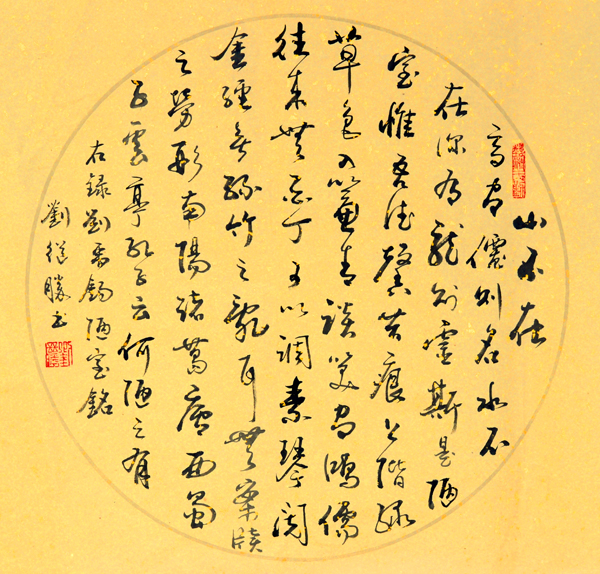 山不在
高有僊則名水不
在深有龍則靈斯是陋
室惟吾德馨苔痕上階緑
草色入簾青談笑有鴻儒
往来無白丁可以調素琴閲
金經無絲竹之亂耳無案牘
之勞形南陽諸葛廬西蜀
子雲亭孔子云何陋之有
右録劉禹錫陋室銘
劉從勝书